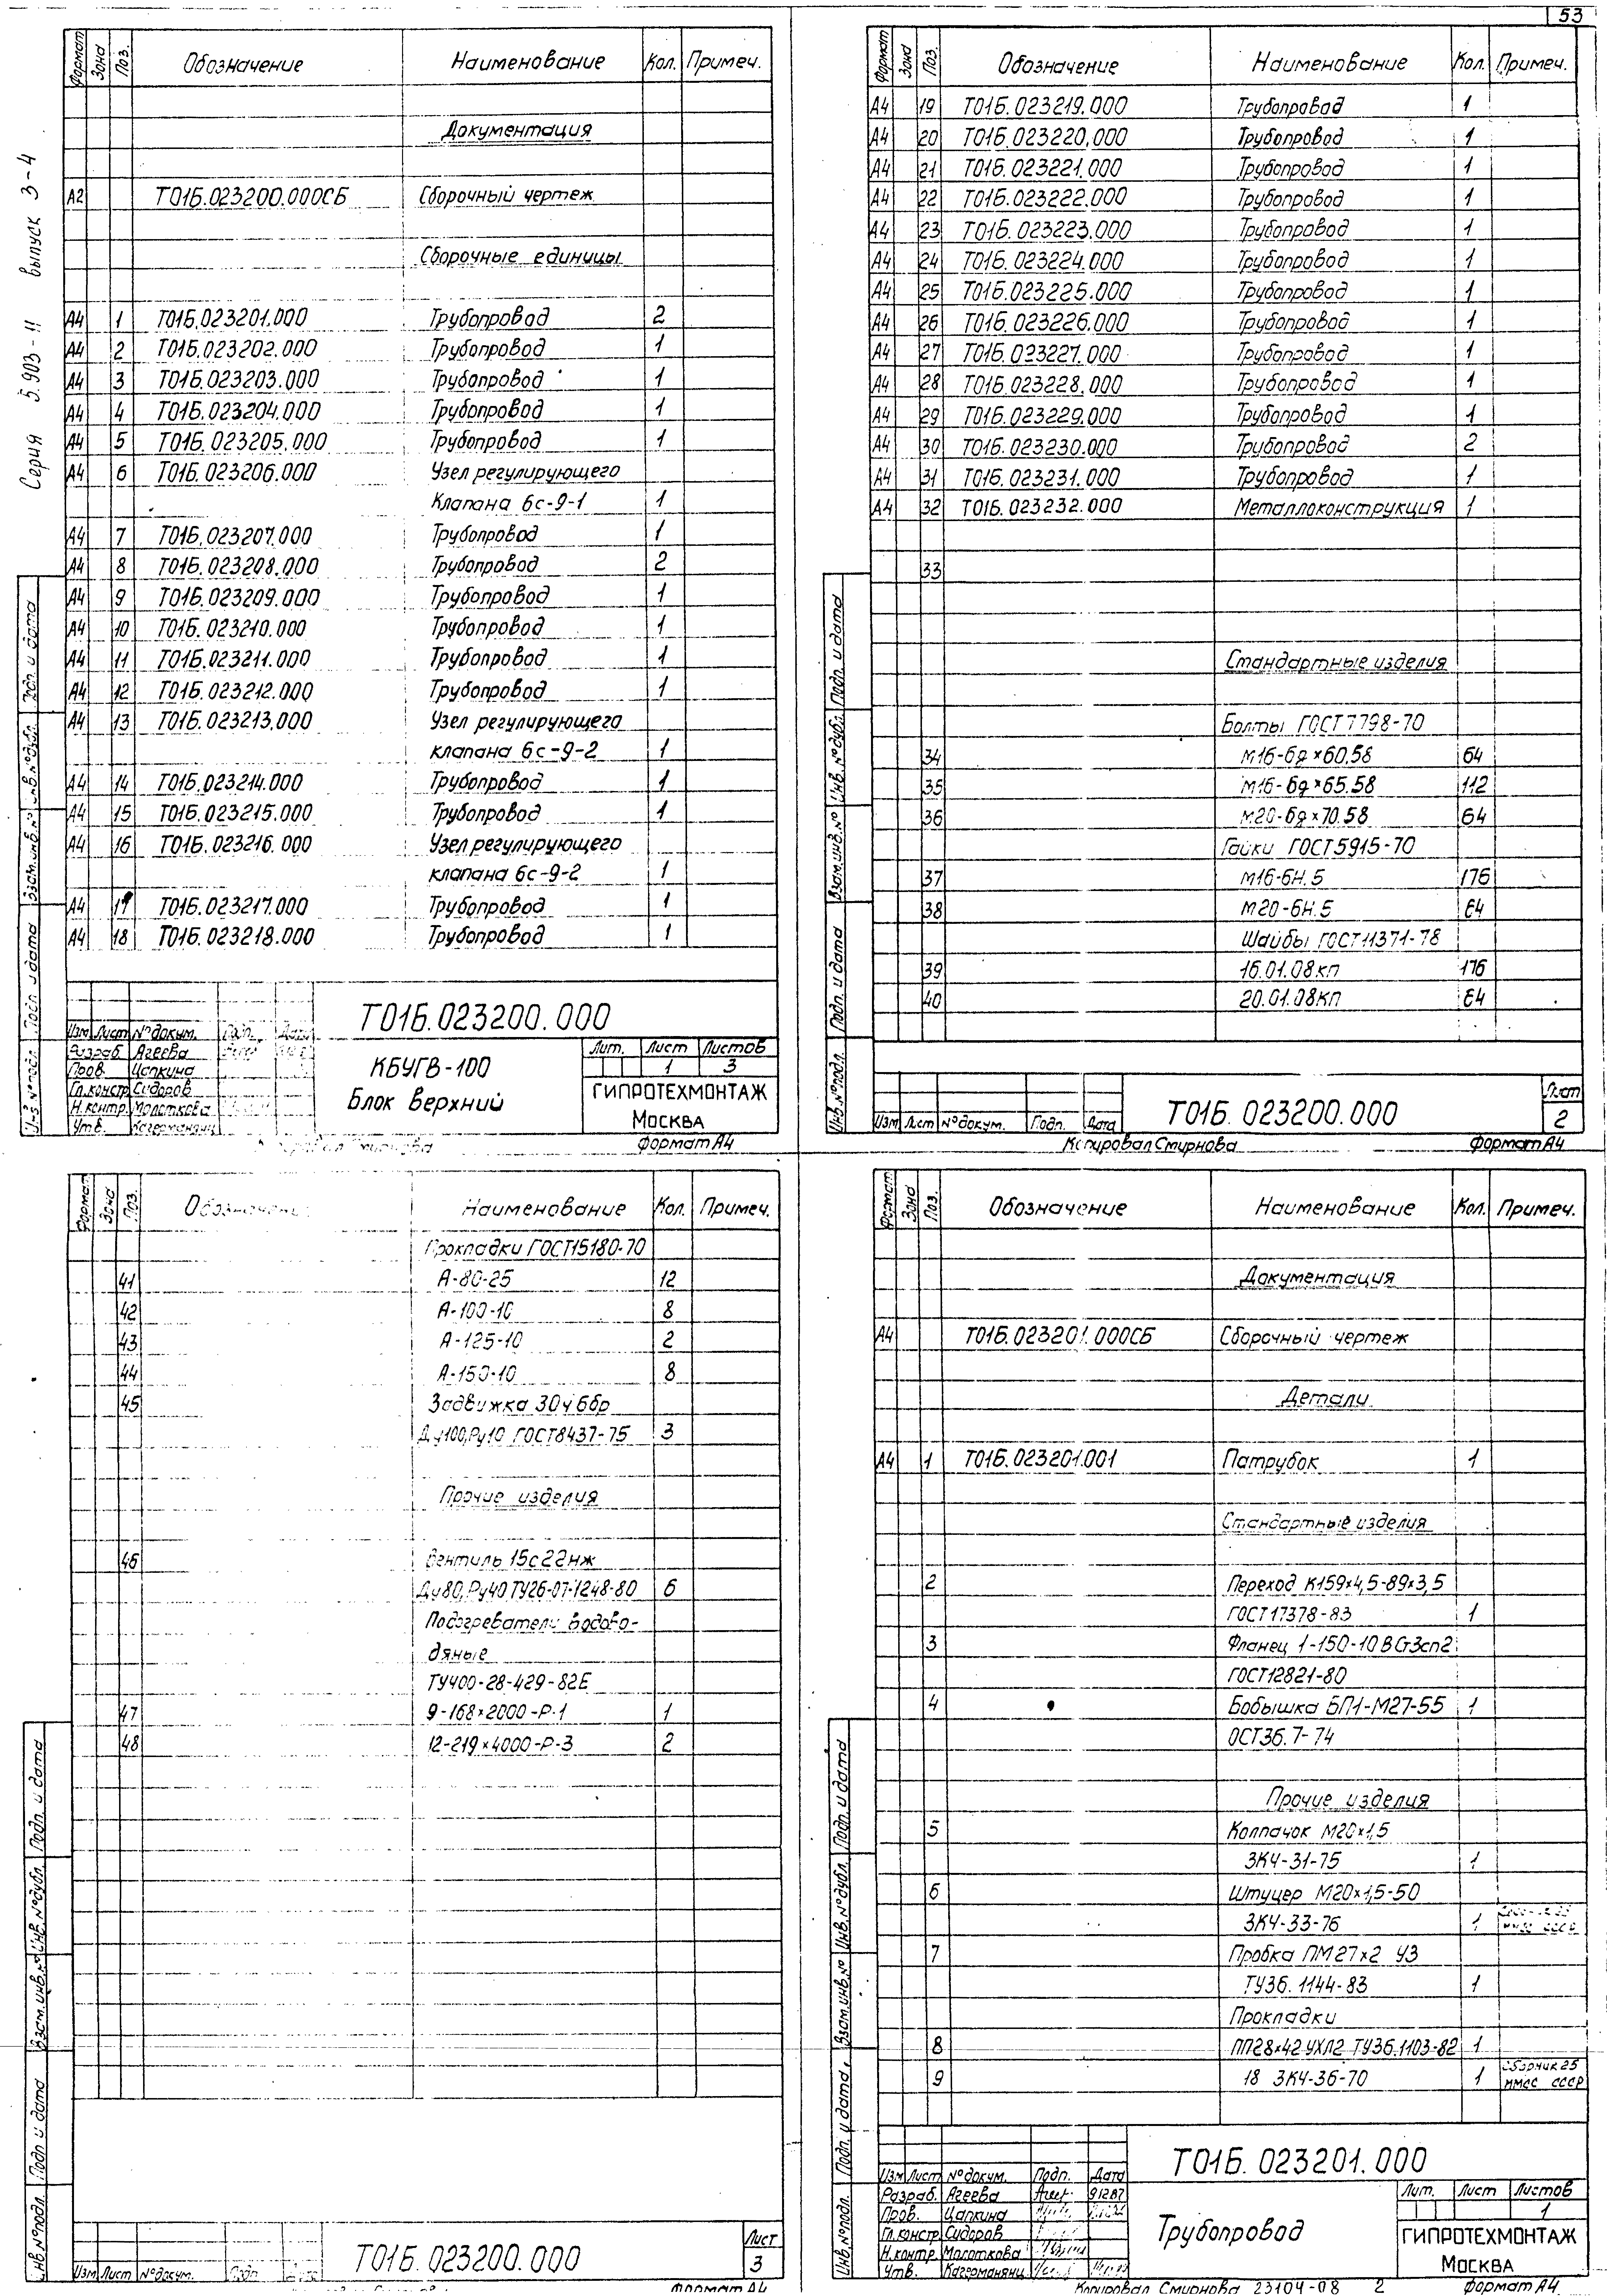 53
Серия 5.903-11 выпуск 3-4
Формат Зона Поз. Обозначение Наименование Кол. Примеч.
Документация
А2 Т01Б.023200.000СБ Сборочный чертеж
Сборочные единицы
А4 1 Т01Б.023201.000 Трубопровод 2
А4 2 Т01Б.023202.000 Трубопровод 1
А4 3 Т01Б.023203.000 Трубопровод 1
А4 4 Т01Б.023204.000 Трубопровод 1
А4 5 Т01Б.023205.000 Трубопровод 1
А4 6 Т01Б.023206.000 Узел регулирующего
Клапана 6с-9-1 1
А4 7 Т01Б.023207.000 Трубопровод 1
А4 8 Т01Б.023208.000 Трубопровод 2
А4 9 Т01Б.023209.000 Трубопровод 1
А4 10 Т01Б.023210.000 Трубопровод 1
А4 11 Т01Б.023211.000 Трубопровод 1
А4 12 Т01Б.023212.000 Трубопровод 1
А4 13 Т01Б.023213.000 Узел регулирующего
клапана 6с-9-2 1
А4 14 Т01Б.023214.000 Трубопровод 1
А4 15 Т01Б.023215.000 Трубопровод 1
А4 16 Т01Б.023216.000 Узел регулирующего
клапана 6с-9-2 1
А4 17 Т01Б.023217.000 Трубопровод 1
А4 18 Т01Б.023218.000 Трубопровод 1
Инв.№подл. Подп. и дата Взам.инв.№ Инв.№дубл. Подп. и дата
Т01Б.023200.000
Изм Лист №докум. Подп. Дата
Разраб. Агеева
Пров. Цапкина
Гл.констр Сидоров
Н.контр. Молоткова
Утв. Кагерманянц
КБУГВ-100
Блок верхний
Лит. Лист Листов
1 3
ГИПРОТЕХМОНТАЖ
Москва
Смирнова Формат А4
Формат Зона Поз. Обозначение Наименование Кол. Примеч.
А4 19 Т01Б.023219.000 Трубопровод 1
А4 20 Т01Б.023220.000 Трубопровод 1
А4 21 Т01Б.023221.000 Трубопровод 1
А4 22 Т01Б.023222.000 Трубопровод 1
А4 23 Т01Б.023223.000 Трубопровод 1
А4 24 Т01Б.023224.000 Трубопровод 1
А4 25 Т01Б.023225.000 Трубопровод 1
А4 26 Т01Б.023226.000 Трубопровод 1
А4 27 Т01Б.023227.000 Трубопровод 1
А4 28 Т01Б.023228.000 Трубопровод 1
А4 29 Т01Б.023229.000 Трубопровод 1
А4 30 Т01Б.023230.000 Трубопровод 2
А4 31 Т01Б.023231.000 Трубопровод 1
А4 32 Т01Б.023232.000 Металлоконструкция 1
33
Стандартные изделия
Болты ГОСТ7798-70
34 М16-6g×60.58 64
35 М16-6g×65.58 112
36 М20-6g×70.58 64
Гайки ГОСТ5915-70
37 М16-6Н.5 176
38 М20-6Н.5 64
Шайбы ГОСТ11371-78
39 16.01.08кп 176
40 20.01.08кп 64
Инв.№подл. Подп. и дата Взам.инв.№ Инв.№дубл. Подп. и дата
Изм Лист №докум. Подп. Дата
Т01Б.023200.000
Лист
2
Копировал Смирнова Формат А4
Формат Зона Поз. Обозначение Наименование Кол. Примеч.
Прокладки ГОСТ15180-70
41 А-80-25 12
42 А-100-10 8
43 А-125-10 2
44 А-150-10 8
45 Задвижка 30ч6бр
Ду100,Ру10 ГОСТ8437-75 3
Прочие изделия
46 Вентиль 15с22нж
Ду80,Ру40 ТУ26-07-1248-80 6
Подогреватели водово-
дяные
ТУ400-28-429-82Е
47 9-168×2000-Р-1 1
48 12-219×4000-Р-3 2
Инв.№подл. Подп. и дата Взам.инв.№ Инв.№дубл. Подп. и дата
Изм Лист №докум. Подп.
Т01Б.023200.000
Лист
3
Формат А4
Формат Зона Поз. Обозначение Наименование Кол. Примеч.
Документация
А4 Т01Б.023201.000СБ Сборочный чертеж
Детали
А4 1 Т01Б.023201.001 Патрубок 1
Стандартные изделия
2 Переход К159×4,5-89×3,5
ГОСТ17378-83 1
3 Фланец 1-150-10 ВСт3сп2
ГОСТ12821-80
4 Бобышка БП1-М27-55 1
ОСТ36.7-74
Прочие изделия
5 Колпачок М20×1,5
ЗК4-31-75 1
6 Штуцер М20×1,5-50
ЗК4-33-76 1
7 Пробка ПМ27×2 У3
ТУ36.1144-83 1
Прокладки
8 ПП28×42 УХЛ2 ТУ36.1103-82 1
9 18 ЗК4-36-70 1 Сборник 25
ММСС СССР
Инв.№подл. Подп. и дата. Взам.инв.№ Инв.№дубл. Подп. и дата
Т01Б.023201.000
Изм Лист №докум. Подп. Дата
Разраб. Агеева 91287
Пров. Цапкина
Гл.констр Сидоров
Н.контр Молоткова
Утв. Кагерманянц
Трубопровод
Лит. Лист Листов
1
ГИПРОТЕХМОНТАЖ
Москва
Копировал Смирнова 23104-08 2 Формат А4